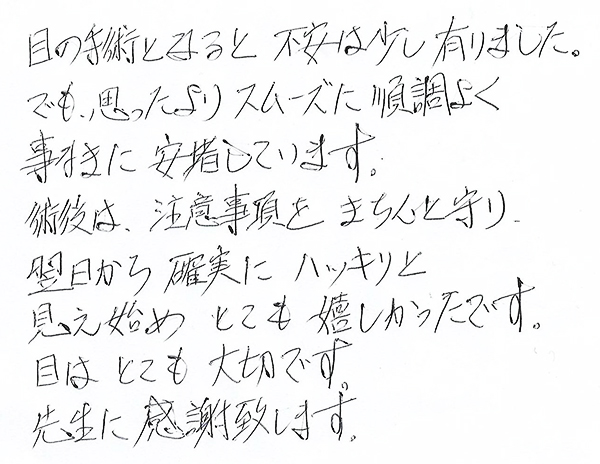 目の手術となると 不安は少し有りました。
でも、思ったよりスムーズに順調よく
事なきに 安堵しています。
術後は、注意事項を きちんと守り
翌日から 確実に ハッキリと
見え始め とても 嬉しかったです。
目は とても 大切です。
先生に 感謝致します。